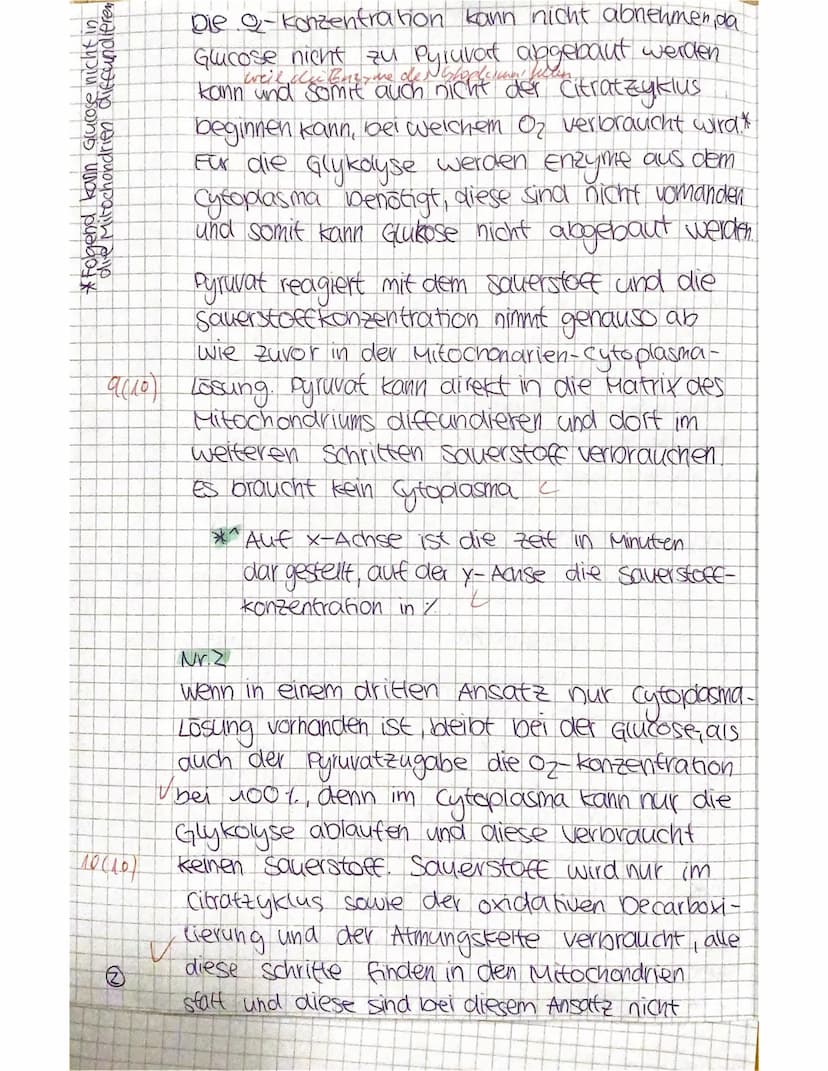 Die O₂-Konzentration kann nicht abnehmen, da
Glucose nicht zu Pyruvat abgebaut werden
weil die Enzyme des Cytoplasmas fehlen
kann und somit auch nicht der Citratzyklus
beginnen kann, bei welchem O₂ verbraucht wird.*
Für die Glykolyse werden Enzyme aus dem
Cytoplasma benötigt, diese sind nicht vorhanden
und somit kann Glukose nicht abgebaut werden.
*Folgend kann Glucose nicht in
die Mitochondrien diffundieren
Pyruvat reagiert mit dem Sauerstoff und die
Sauerstoffkonzentration nimmt genauso ab
wie zuvor in der Mitochondrien-Cytoplasma-
9(10)
Lösung. Pyruvat kann direkt in die Matrix des
Mitochondriums diffundieren und dort im
weiteren Schritten Sauerstoff verbrauchen.
Es braucht kein Cytoplasma
*^ Auf x-Achse ist die Zeit in Minuten
dargestellt, auf der y-Achse die Sauerstoff-
konzentration in %
Nr.2
Wenn in einem dritten Ansatz nur Cytoplasma-
Lösung vorhanden ist, bleibt bei der Glucose, als
auch der Pyruvatzugabe die O₂-Konzentration
bei 100%, denn im Cytoplasma kann nur die
Glykolyse ablaufen und diese verbraucht
10(10)
keinen Sauerstoff. Sauerstoff wird nur im
Citratzyklus sowie der oxidativen Decarboxi-
lierung und der Atmungskette verbraucht, alle
diese Schritte finden in den Mitochondrien
statt und diese sind bei diesem Ansatz nicht
②